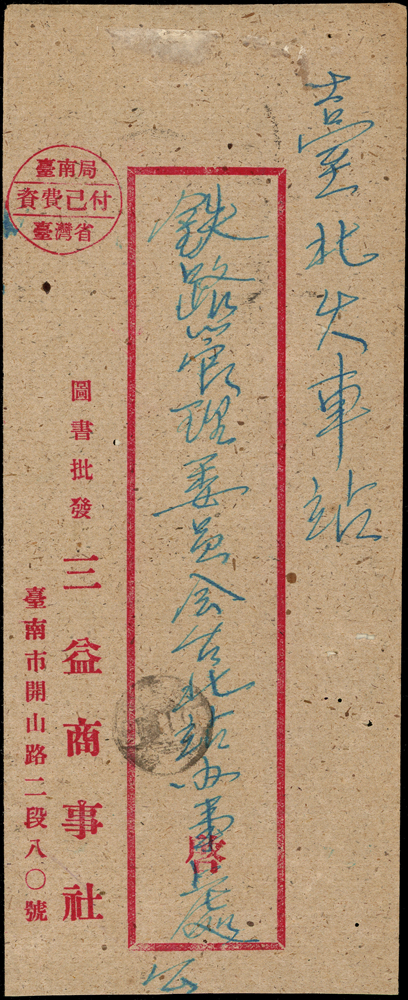 臺北火車站
鉄路管理委員会台北站办事処 公
啓
臺南局
資費已付
臺灣省
圖書批發
三益商事社
臺南市開山路二段八〇號